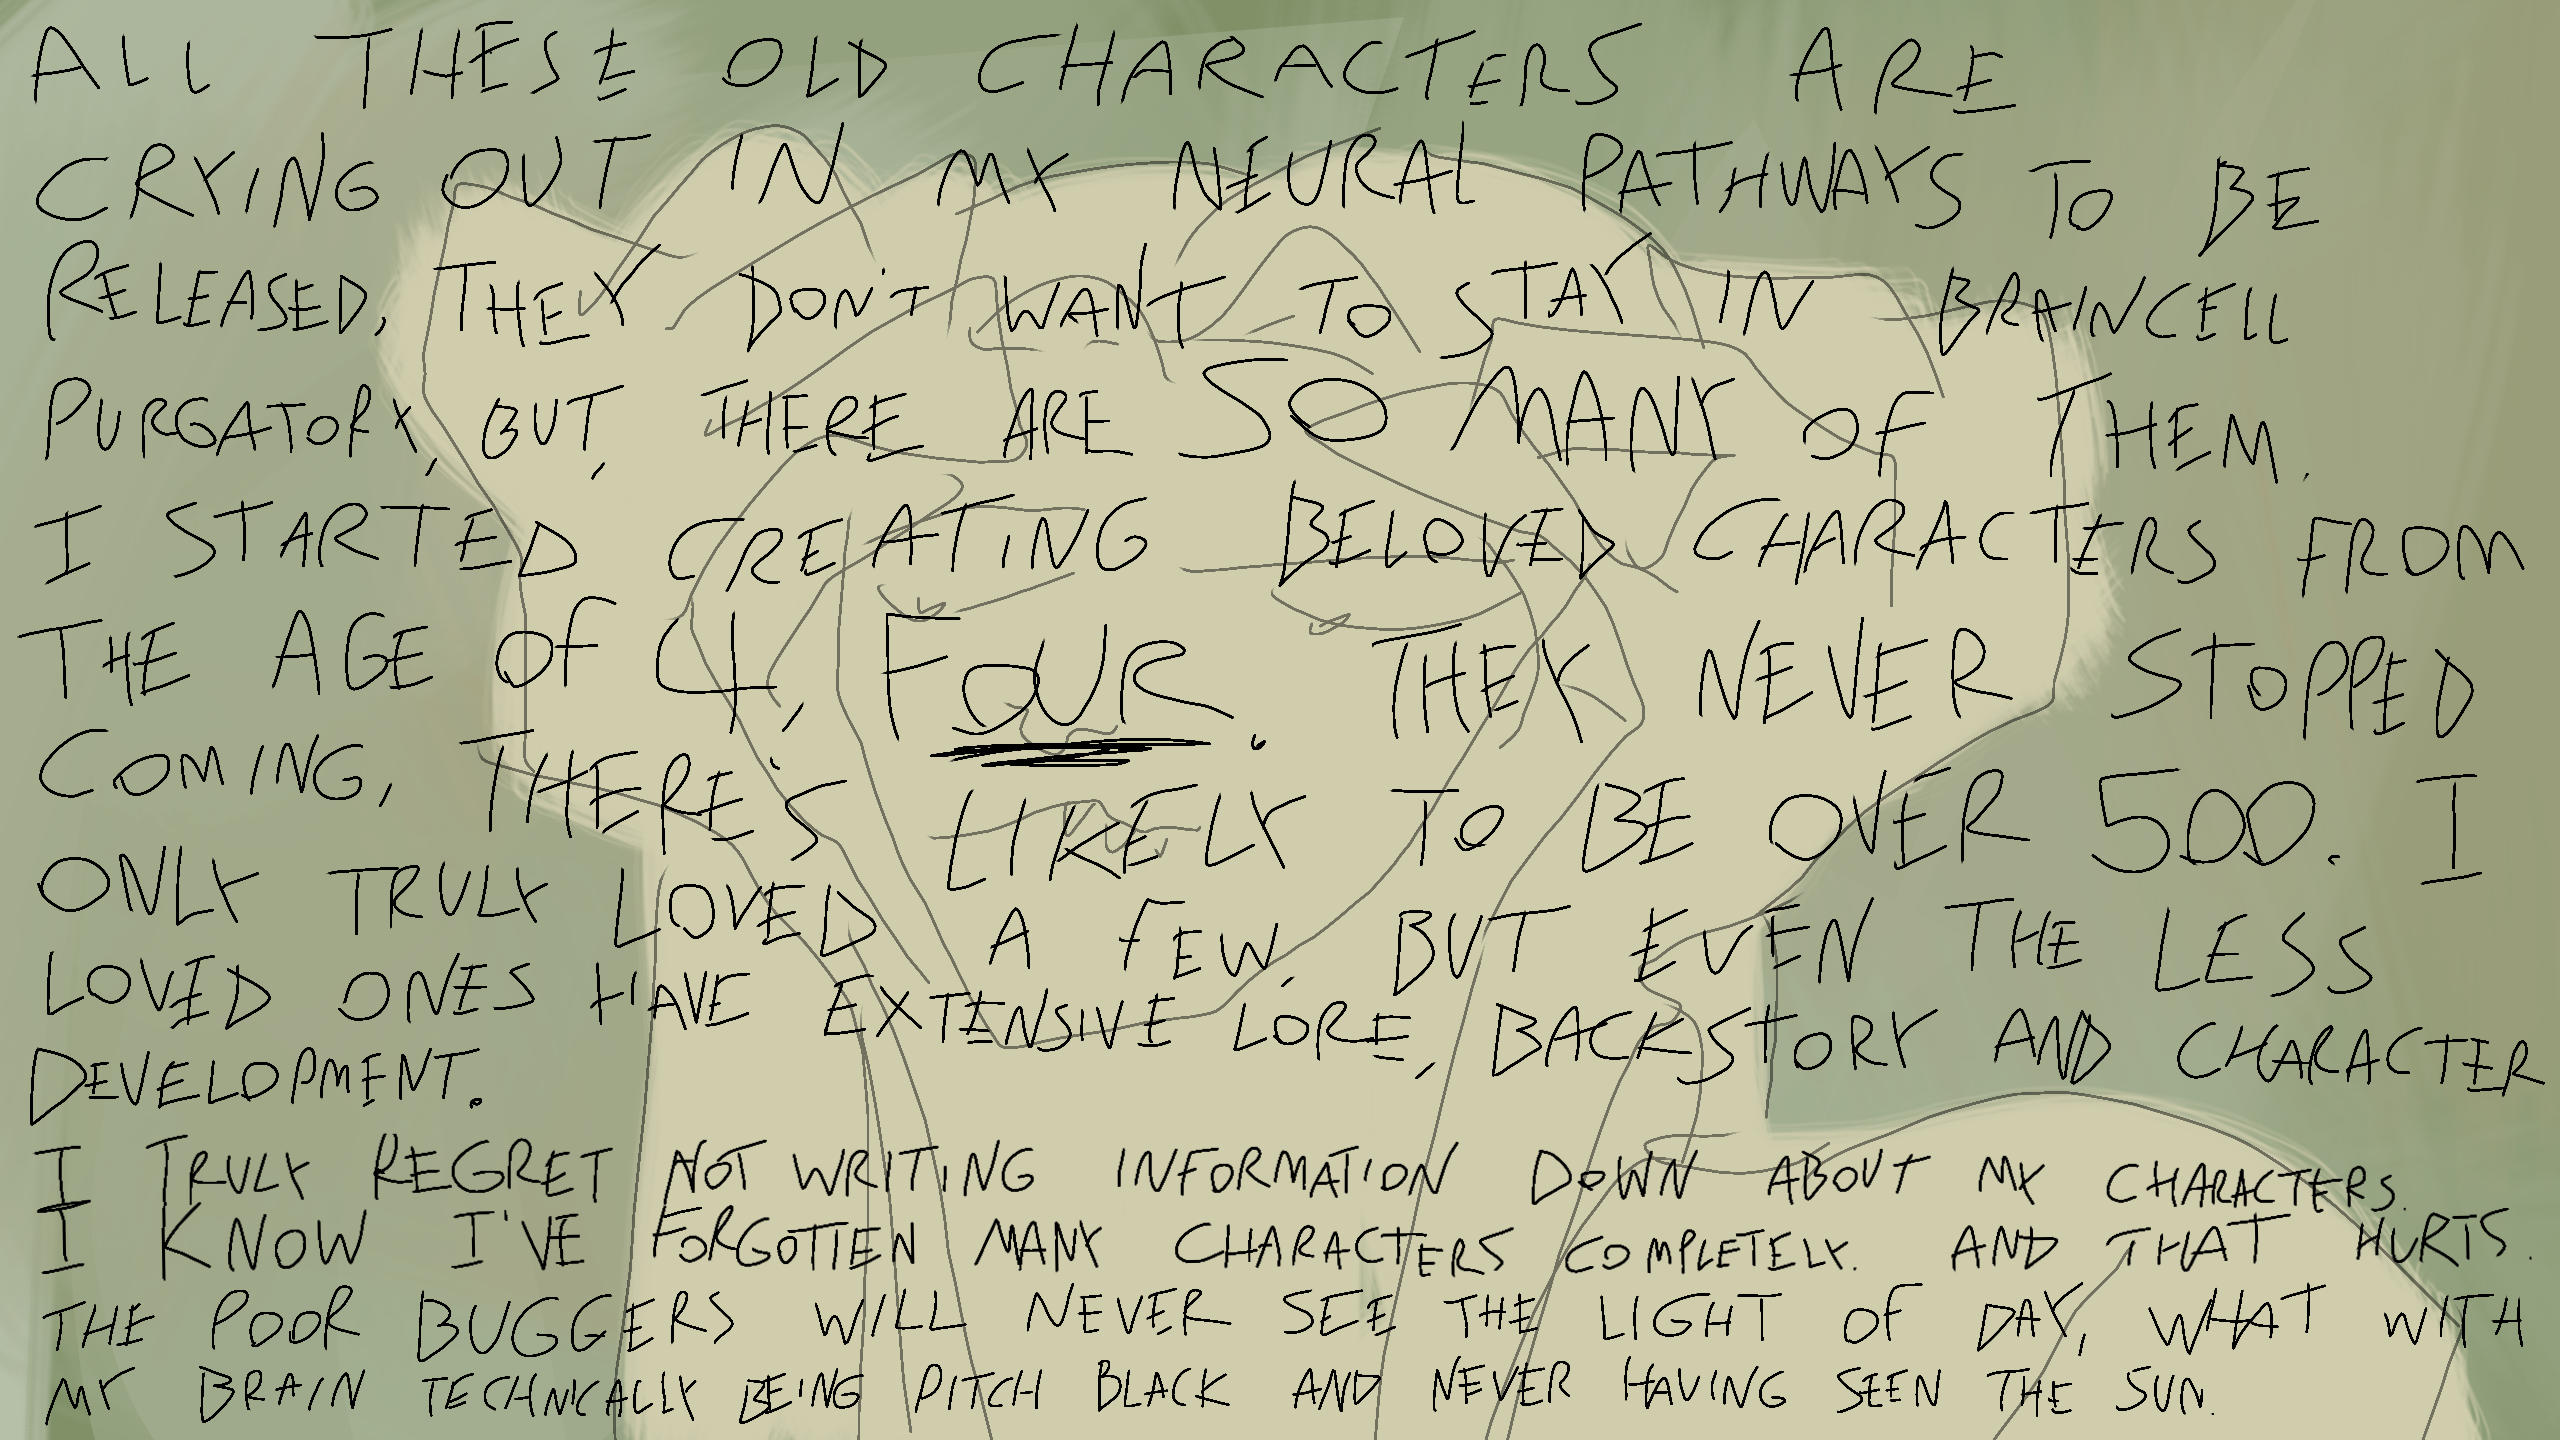 ALL THESE OLD CHARACTERS ARE
CRYING OUT IN MY NEURAL PATHWAYS TO BE
RELEASED, THEY DON'T WANT TO STAY IN BRAINCELL
PURGATORY, BUT, THERE ARE SO MANY OF THEM.
I STARTED CREATING BELOVED CHARACTERS FROM
THE AGE OF 4, FOUR. THEY NEVER STOPPED
COMING, THERE'S LIKELY TO BE OVER 500. I
ONLY TRULY LOVED A FEW, BUT EVEN THE LESS
LOVED ONES HAVE EXTENSIVE LORE, BACKSTORY AND CHARACTER
DEVELOPMENT.
I TRULY REGRET NOT WRITING INFORMATION DOWN ABOUT MY CHARACTERS.
I KNOW I'VE FORGOTTEN MANY CHARACTERS COMPLETELY. AND THAT HURTS.
THE POOR BUGGERS WILL NEVER SEE THE LIGHT OF DAY, WHAT WITH
MY BRAIN TECHNICALLY BEING PITCH BLACK AND NEVER HAVING SEEN THE SUN.